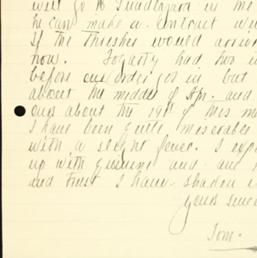 well go to Guadlajara in the
he can make a contract wi
If the Thresher would arriv
now. Fogarty had his
before our order got in but
about the middle of Apr. and
out about the 19th of this m
I have been quite miserable
with a slight fever. I
up with quinine and am
and trust I have shaken
yours since
Tom.